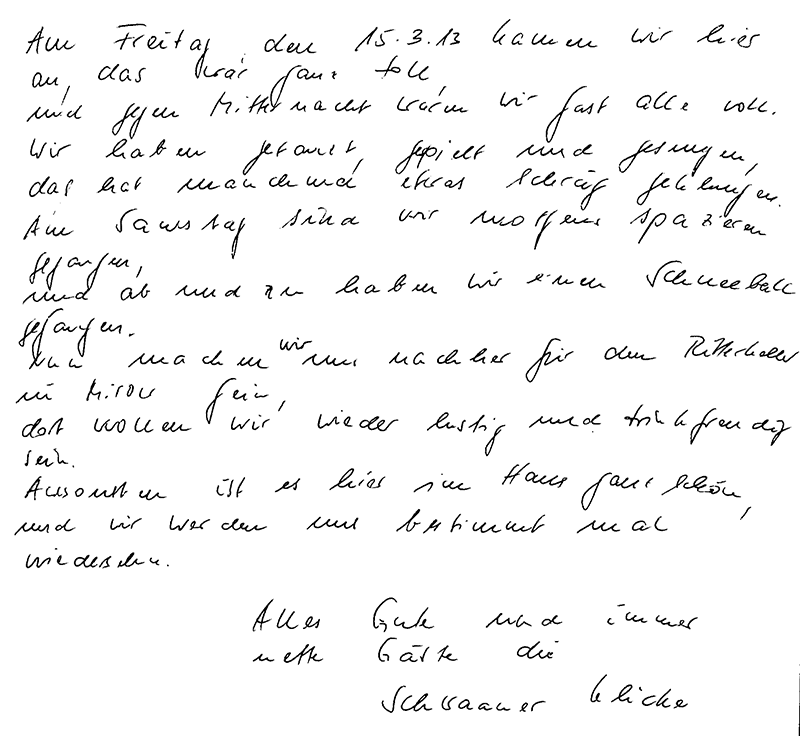 Am Freitag den 15.3.13 kamen wir hier
an, das war ganz toll,
und gegen Mitternacht waren wir fast alle voll.
Wir haben getanzt, gespielt und gesungen,
das hat manchmal etwas schräg geklungen.
Am Samstag sind wir morgens spazieren
gegangen,
und ab und zu haben wir einen Schneeball
gefangen.
Nun machen wir uns nachher für den Ritterkeller
in Mirow fein,
dort wollen wir wieder lustig und trinkfreudig
sein.
Ansonsten ist es hier im Haus ganz schön,
und wir werden uns bestimmt mal
wiedersehn.
Alles Gute und immer
nette Gäste die
Schwaaner Klicke